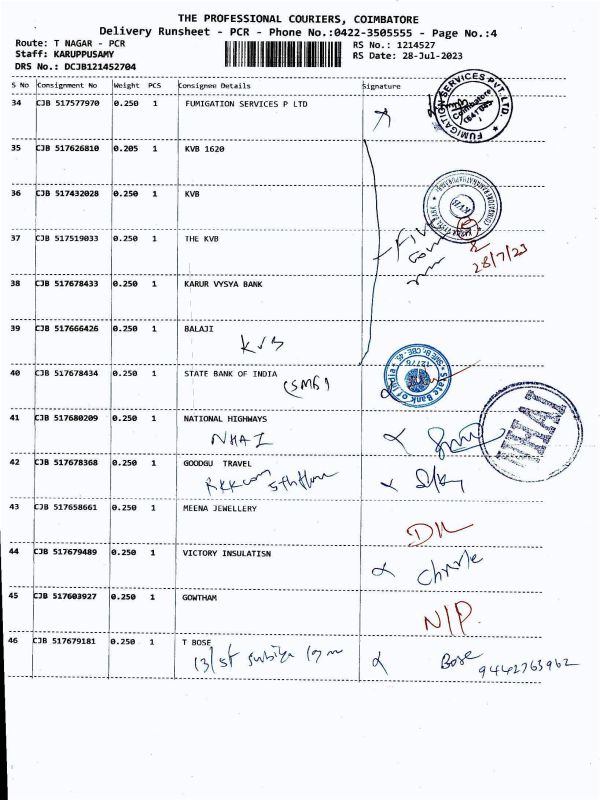 THE PROFESSIONAL COURIERS, COIMBATORE
Delivery Runsheet - PCR - Phone No.:0422-3505555 - Page No.:4
Route: T NAGAR - PCR
Staff: KARUPPUSAMY
DRS No.: DCJB121452704
RS No.: 1214527
RS Date: 28-Jul-2023
S No Consignment No Weight PCS Consignee Details Signature
34 CJB 517577970 0.250 1 FUMIGATION SERVICES P LTD
FUMIGATION SERVICES PVT. LTD.
Coimbatore
35 CJB 517626810 0.205 1 KVB 1620
36 CJB 517432028 0.250 1 KVB
KVB
37 CJB 517519033 0.250 1 THE KVB
28/7/23
38 CJB 517678433 0.250 1 KARUR VYSYA BANK
39 CJB 517666426 0.250 1 BALAJI
KVB
40 CJB 517678434 0.250 1 STATE BANK OF INDIA
(SMB)
State Bank of India
41 CJB 517680209 0.250 1 NATIONAL HIGHWAYS
NHAI
NHAI
42 CJB 517678368 0.250 1 GOODGU TRAVEL
5th floor
43 CJB 517658661 0.250 1 MEENA JEWELLERY
DIL
44 CJB 517679489 0.250 1 VICTORY INSULATISN
45 CJB 517603927 0.250 1 GOWTHAM
N/P.
46 CJB 517679181 0.250 1 T BOSE
Bose
9442763962